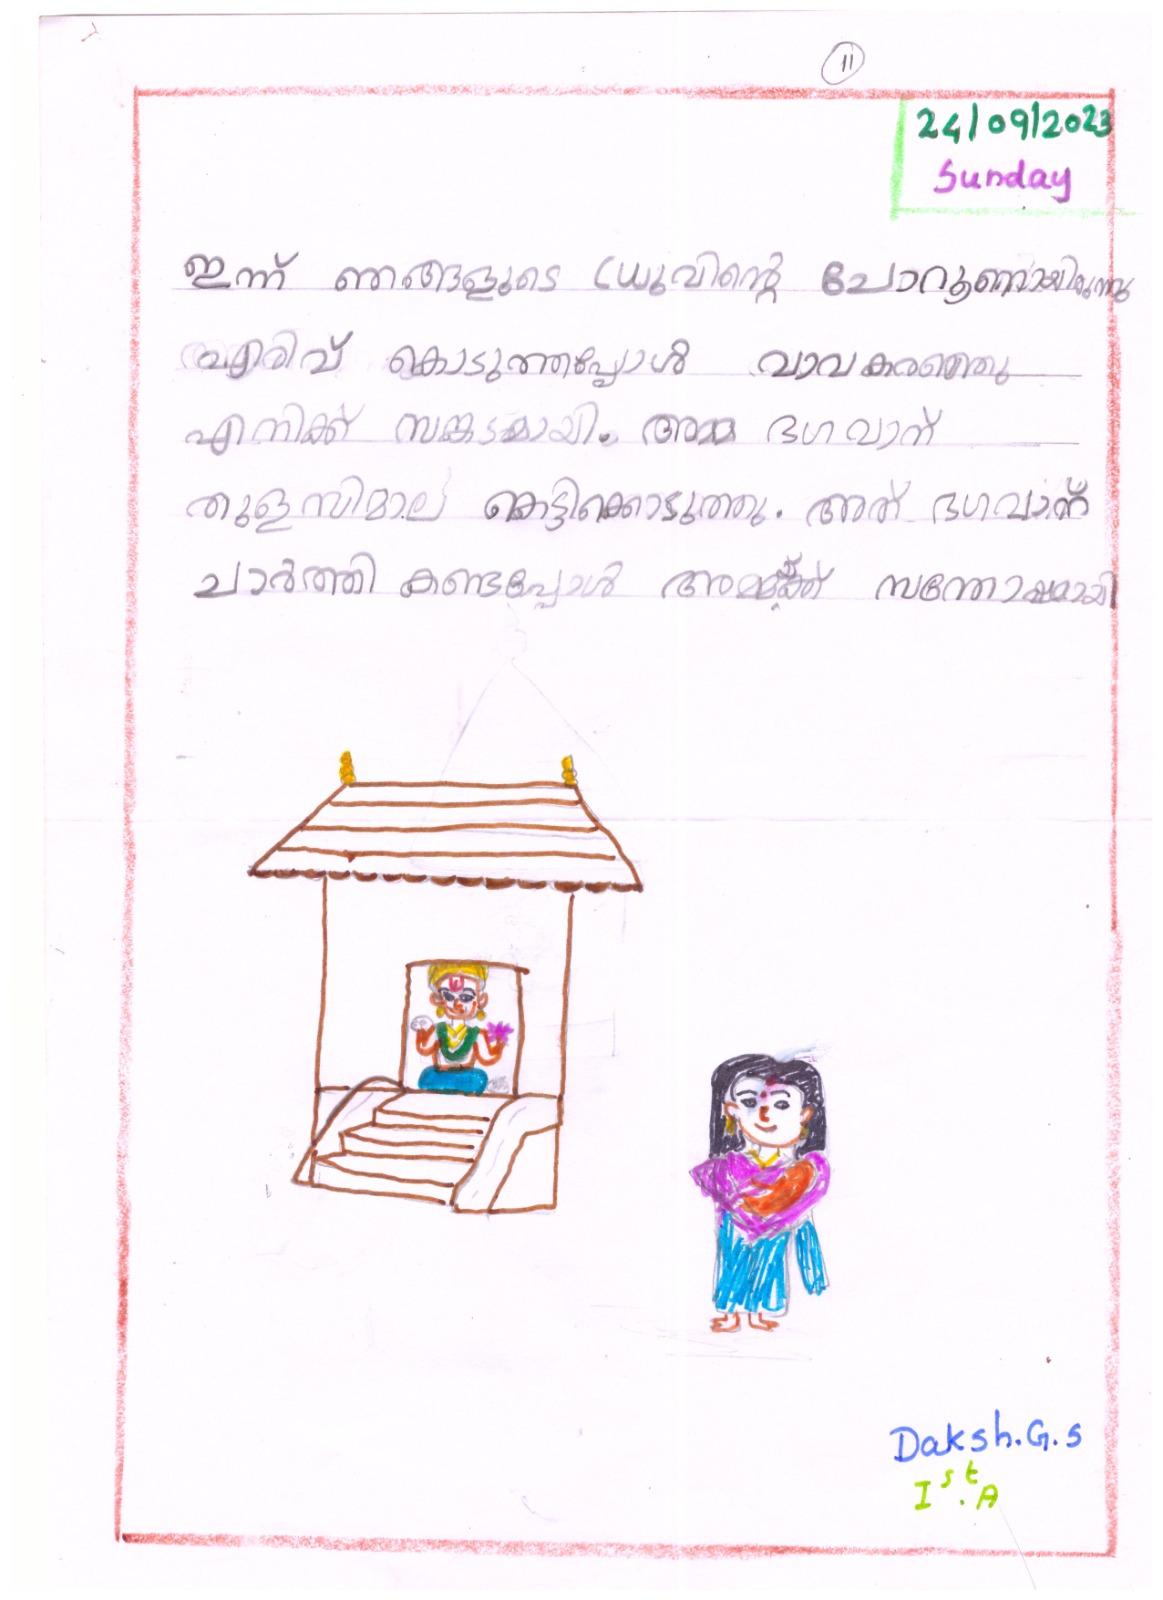 11
24/09/2023
Sunday
ഇന്ന് ഞങ്ങളുടെ ധ്രുവിന്റെ ചോറൂണായിരുന്നു
എരിവ് കൊടുത്തപ്പോൾ വാവകരഞ്ഞു
എനിക്ക് സങ്കടമായി. അമ്മ ഭഗവാന്
തുളസിമാല കെട്ടിക്കൊടുത്തു. അത് ഭഗവാന്
ചാർത്തി കണ്ടപ്പോൾ അമ്മയ്ക്ക് സന്തോഷമായി
Daksh.G.S
Ist.A